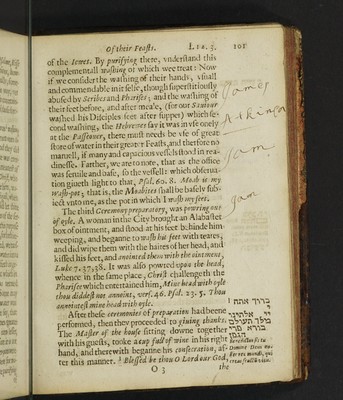 Of their Feasts. Lib. 3. 101
of the Iewes. By purifying there, vnderstand this
complementall washing of which wee treat: Now
if we consider the washing of their hands, vsuall
and commendable in it selfe, though superstitiously
abused by Scribes and Pharises; and the washing of
their feet before, and after meale, (for our Sauiour
washed his Disciples feet after supper) which se-
cond washing, the Hebrewes say it was in vse onely
at the Passeouer, there must needs be vse of great
store of water in their greater Feasts, and therfore no
maruell, if many and capacious vessels stood in rea-
dinesse. Farther, we are to note, that as the office
was seruile and base, so the vessell: which obserua-
tion giueth light to that, Psal. 60. 8. Moab is my
wash-pot; that is, the Moabites shall be basely sub-
iect vnto me, as the pot in which I wash my feet.
The third Ceremony preparatory, was powring out
of oyle. A woman in the City brought an Alabaster
box of ointment, and stood at his feet behinde him
weeping, and beganne to wash his feet with teares,
and did wipe them with the haires of her head, and
kissed his feet, and anointed them with the ointment,
Luke 7. 37, 38. It was also powred vpon the head,
whence in the same place, Christ challengeth the
Pharise which entertained him, Mine head with oyle
thou didst not annoint, vers. 46. Psal. 23. 5. Thou
annointest mine head with oyle.
After these ceremonies of preparation had beene
performed, then they proceeded to giuing thankes.
The Master of the house sitting downe together
with his guests, tooke a cup full of wine in his right
hand, and therewith beganne his consecration, af-
ter this manner. Blessed be thou O Lord our God,
O 3 the
James
Atkinson
Jam
Jam
ברוך אתה
אלהינו
מלך העולם
בורא פרי
הגפן
Benedictus sis tu
Domine Deus no-
ster rex mundi, qui
creas fructū vitis.